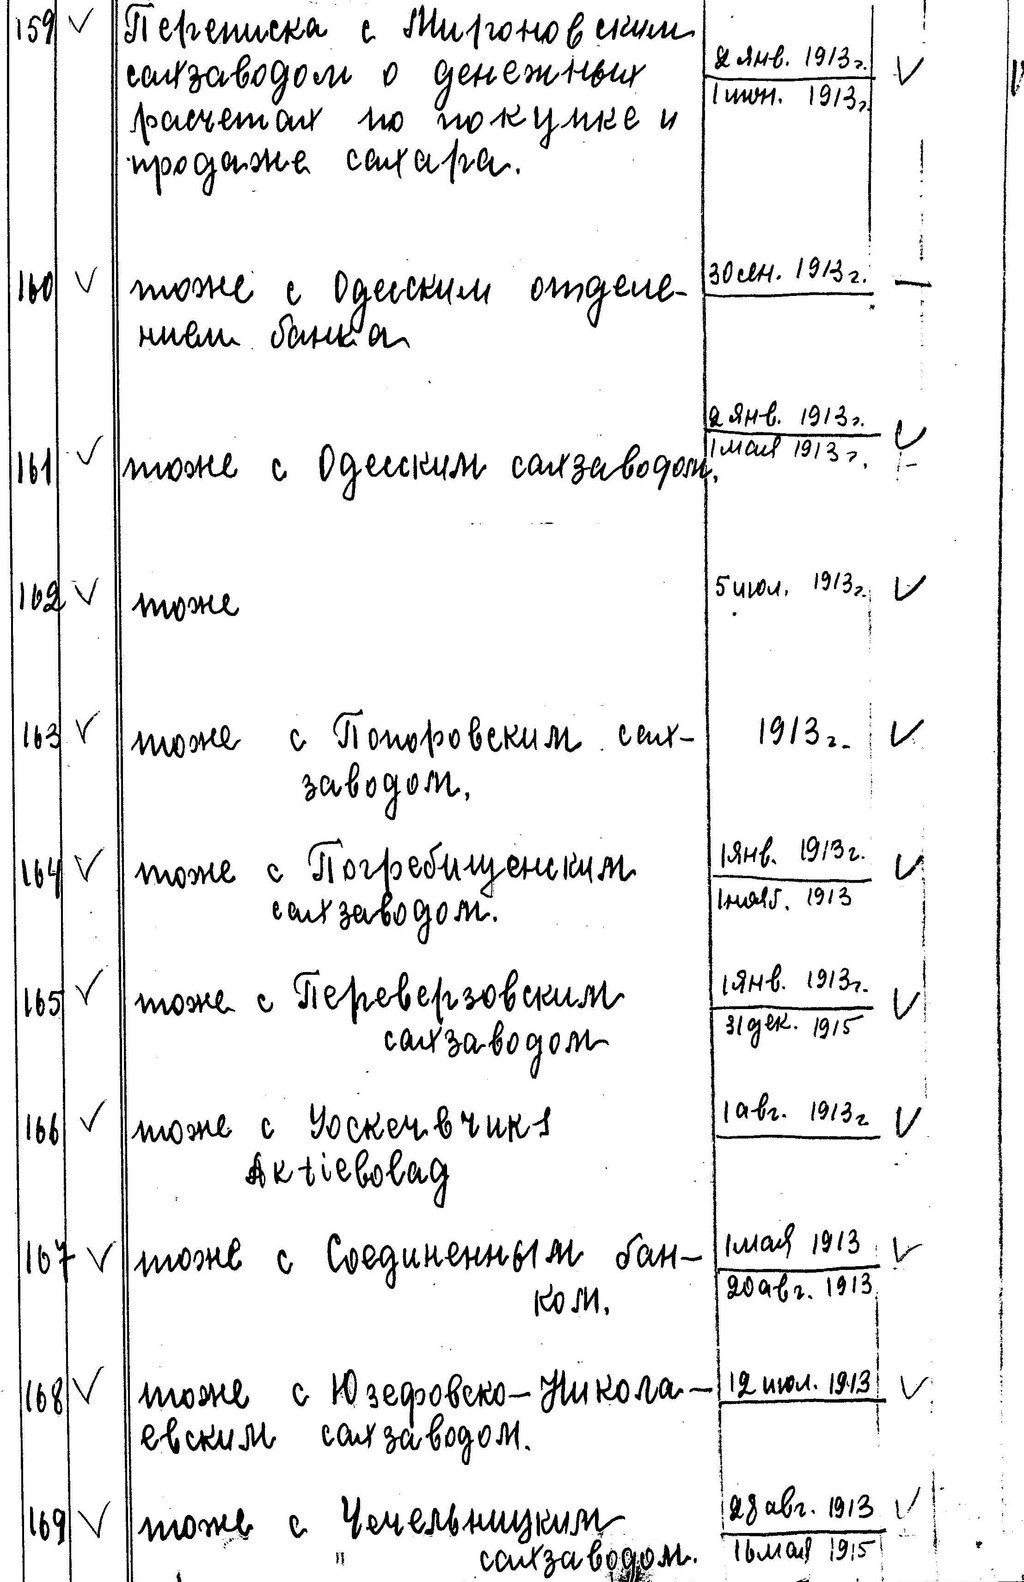 159 ✓ Переписка с Мироновским 2 янв. 1913 г. ✓
сахзаводом о денежных 1 июн. 1913 г.
расчетах по покупке и
продаже сахара.
160 ✓ тоже с Одесским отделе- 30 ян. 1913 г. —
нием банка
161 ✓ тоже с Одесским сахзаводом. 2 янв. 1913 г. ✓
1 мая 1913 г.
162 ✓ тоже 5 июл. 1913 г. ✓
163 ✓ тоже с Попоровским сах- 1913 г. ✓
заводом.
164 ✓ тоже с Погребищенским 1 янв. 1913 г. ✓
сахзаводом. 1 нояб. 1913
165 ✓ тоже с Переверзовским 1 янв. 1913 г. ✓
сахзаводом 31 дек. 1915
166 ✓ тоже с 1 авг. 1913 г ✓
167 ✓ тоже с Соединенным бан- 1 мая 1913 ✓
ком. 20 авг. 1913
168 ✓ тоже с Юзефовско-Никола- 12 июл. 1913 ✓
евским сахзаводом.
169 ✓ тоже с Чечельницким 28 авг. 1913 ✓
" сахзаводом. 16 мая 1915